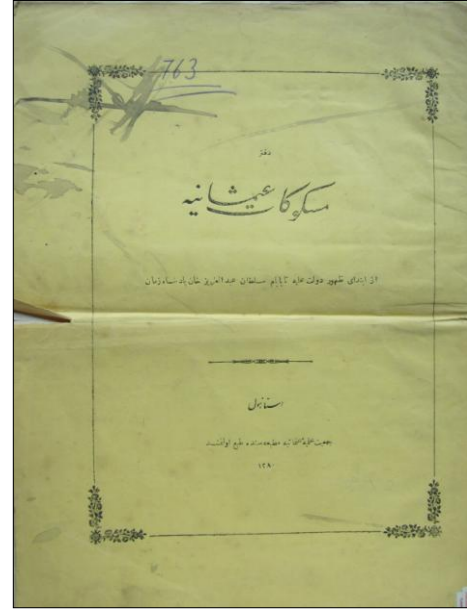 763
دفتر
مسكوكات عثمانیه
از ابتدای ظهور دولت علیه تا بایام سلطان عبدالعزیز خان پادشاه زمان
استانبول
جمعیت علمیهٔ عثمانیه مطبعه‌سنده طبع اولنمشدر
١٢٨٠